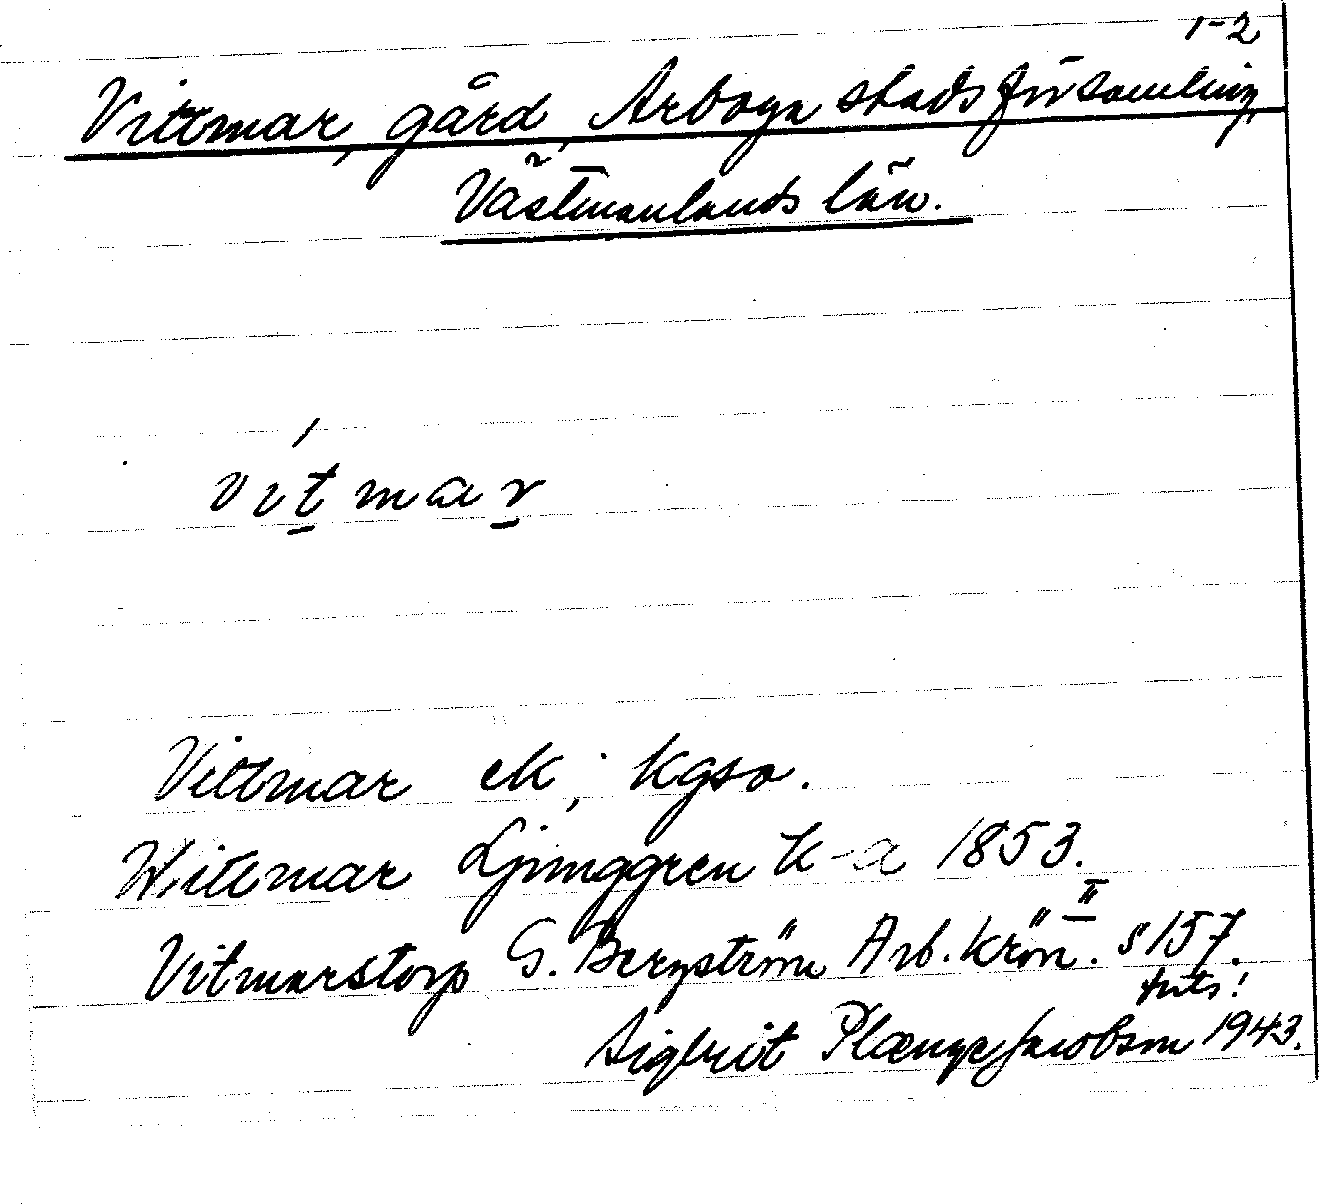 1-2
Vittmar, gård, Arboga stadsförsamling,
Västmanlands län.
vítmar
Vittmar ek; kgso.
Wittmar Ljunggren k-a 1853.
Vitmarstorp G. Bergström Arb. krön. II s 157.
forts!
Sigbrit Plænge Jacobson 1943.